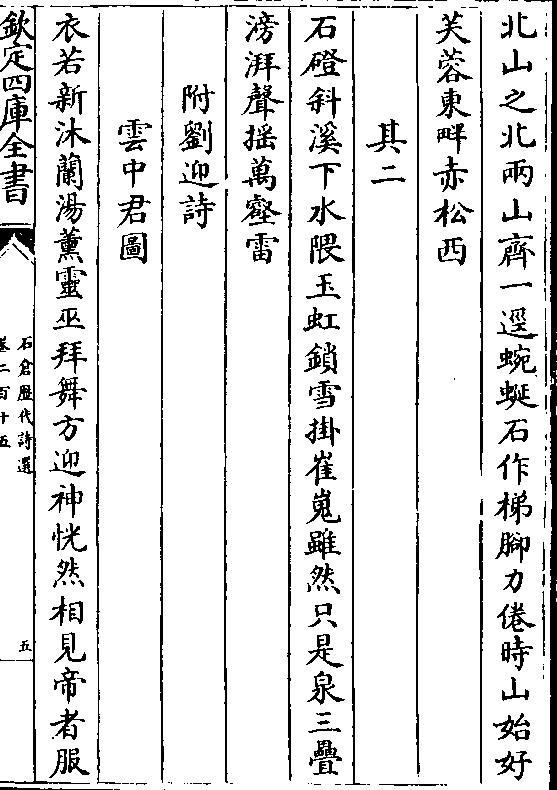 北山之北兩山齊一逕蜿蜒石作梯腳力倦時山始好
芙蓉東畔赤松西
其二
石磴斜溪下水隈玉虹鎖雪掛崔嵬雖然只是泉三疊
滂湃聲搖萬壑雷
附劉迎詩
雲中君圖
衣若新沐蘭湯薰靈巫拜舞方迎神恍然相見帝者服
欽定四庫全書
石倉歷代詩選
卷二百十五
五